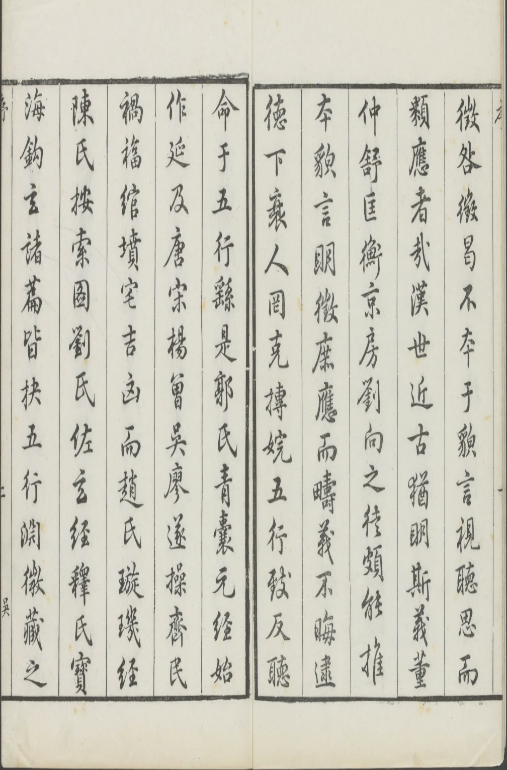 徵咎徵曷不本于貌言視聽思而
類應者哉漢世近古猶明斯義董
仲舒匡衡京房劉向之徒頗能推
本貌言明徵庶應而疇義不晦逮
德下衰人罔克摶婉五行聀反聽
命于五行繇是郭氏青囊元經始
作延及唐宋楊曾吳廖遂操齊民
禍福綰墳宅吉凶而趙氏璇璣經
陳氏按索圖劉氏佐玄經釋氏寶
海鈎玄諸篇皆抉五行淵微藏之
序
二
吳